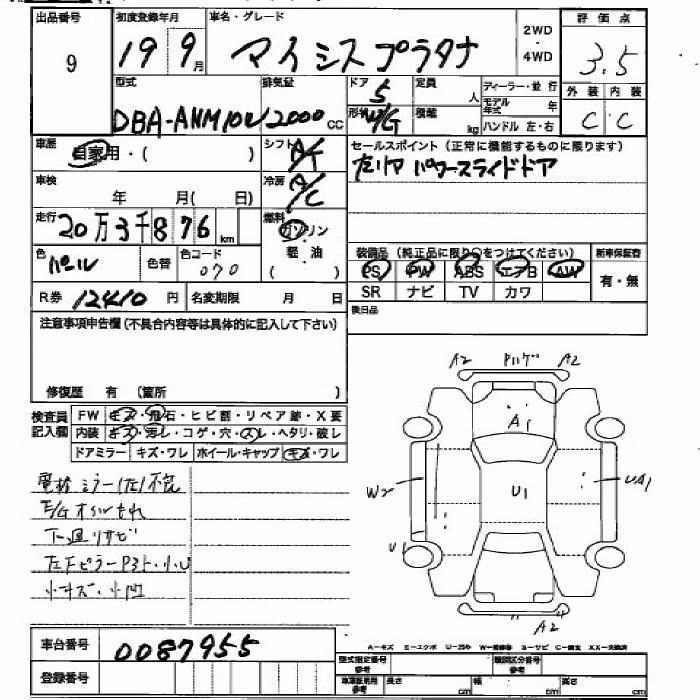 出品番号
9
初度登録年月
19 9月
車名・グレード
マイシスプラタナ
2WD
・
4WD
評価点
3.5
外装 内装
C C
型式
DBA-ANM10W
排気量
2000 cc
ドア
5
形状
W/G
定員
人
積載
kg
ディーラー・並行
モデル年式 年
ハンドル 左・右
車歴
自家用・( )
シフト
A/T
セールスポイント(正常に機能するものに限ります)
左リア パワースライドドア
車検
年 月( 日)
冷房
A/C
走行
20万3千876 km
燃料
ガソリン
軽・油
( )
色
パール
色替
色コード
070
装備品(純正品に限り○をつけてください)
PS PW ABS エアB AW
SR ナビ TV カワ
新車保証書
有・無
R券 12410 円
名変期限 月 日
後日品
注意事項申告欄(不具合内容等は具体的に記入して下さい)
修復歴 有 (箇所 )
検査員記入欄
FW キズ・飛石・ヒビ割・リペア跡・X要
内装 キズ・汚レ・コゲ・穴・スレ・ヘタリ・破レ
ドアミラー キズ・ワレ ホイール・キャップ キズ・ワレ
電格ミラー(左)不良
E/Gオイルもれ
下廻りサビ
小キズ・小凹
A2 A2
A1
W2
U1
UA1
U
A2
車台番号
0087955
登録番号
型式指定番号
参考
類別区分番号
参考
車検証専用
参考
長さ cm
幅 cm
高さ cm